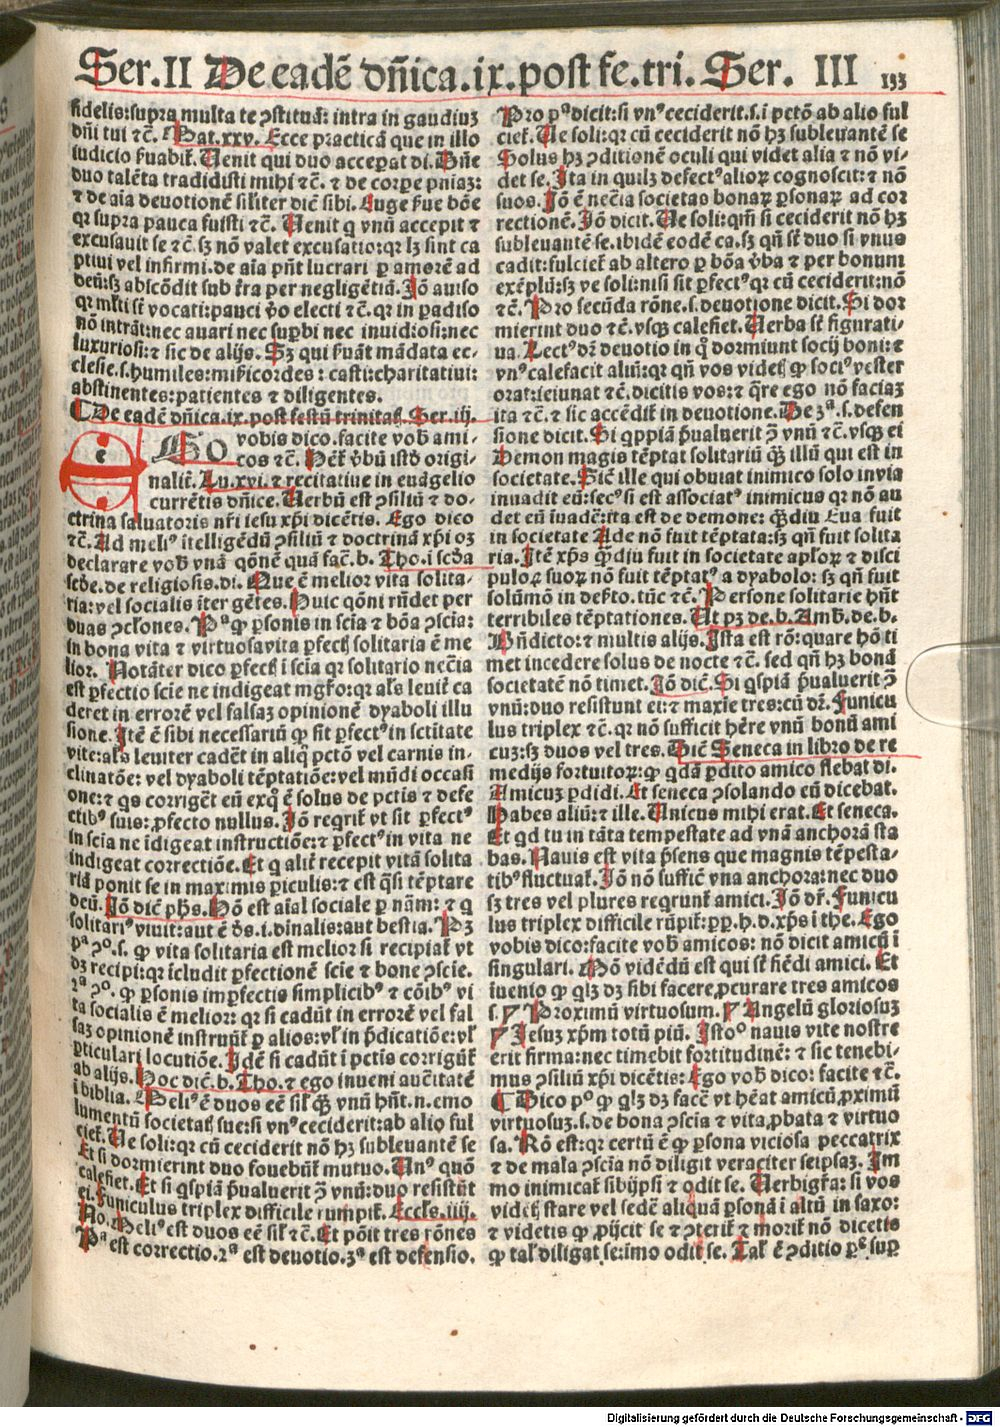 Ser. II De eadē dñica. ix. post fe. tri. Ser. III 193
fidelis: supra multa te ꝯstituā: intra in gaudiuꝫ
dñi tui ⁊c̄. Mat. xxv. Ecce practicā que in illo
iudicio ẜuabit̄. Uenit qui duo acceperat di. Dñe
duo talēta tradidisti mihi ⁊c̄. ⁊ de corꝑe pniaꝫ:
⁊ de aīa deuotionē siliter dicē sibi. Euge ẜue bōe
qꝛ supra pauca fuisti ⁊c̄. Uenit q vnū accepit ⁊
excusauit se ⁊c̄ sꝫ nō valet excusatio: qꝛ lꝫ sint ca
ptiui vel infirmi. de aīa pñt lucrari ꝑ amorē ad
deū: sꝫ abscōdit sub ťra per negligētiā. Iō auiso
qꝛ mĺti sť vocati: pauci ꝟo electi ⁊c̄. qꝛ in ꝑadiso
nō intrāt: nec auari nec suꝑbi nec inuidiosi: nec
luxuriosi: ⁊ sic de alijs. Sꝫ qui ẜuāt mādata ec-
clesie. s. humiles: mĩcordes: casti: charitatiui:
abstinentes: patientes ⁊ diligentes.
¶ De eadē dñica. ix. post festū trinitaꝭ. Ser. iij.
EGo vobis dico. facite vob̄ ami-
cos ⁊c̄. Hēt̄ ꝟbū istď origi-
nalit̄. Lu. xvi. ⁊ recitatiue in euāgelio
currētis dñice. Uerbū est ꝯsiliū ⁊ do-
ctrina saluatoris nr̄i iesu xp̄i dicētis. Ego dico
⁊c̄. Ad meliꝰ ītelligēdū ꝯsiliū ⁊ doctrinā xp̄i oꝫ
declarare vob̄ vnā qōnē quā fac̄. b. Tho. i sc̄ďa
sc̄ďe. de religiosis. di. Que ē melior vita solita-
ria: vel socialis īter gētes. Huic qōni rn̄det per
duas ꝯcl'ones. Pᵃ ꝙ ꝑsonis in scīa ⁊ bōa ꝯscīa:
in bona vita ⁊ virtuosa vita ꝑfectꝭ solitaria ē me
lior. Notāter dico ꝑfectꝭ i scīa qꝛ solitario nec̄ia
est ꝑfectio scīe ne indigeat mgr̄o: qꝛ al's leuit̄ ca
deret in errorē vel falsaꝫ opinionē dyaboli illu
sione. Itē ē sibi necessariū ꝙ sit ꝑfectꝰ in sc̄titate
vite: al's leuiter cadēt in aliqꝭ pctō vel carnis in-
clinatōe: vel dyaboli tēptatiōe: vel mūdi occasi
one: ⁊ qs corriget eū exq̊ ē solus de pctis ⁊ defe
ctibꝰ suis: ꝓfecto nullus. Iō reqrit̄ vt sit ꝑfectꝰ
in scīa ne īdigeat instructiōe: ⁊ ꝑfectꝰ in vita ne
indigeat correctiōe. Et q alit̄ recepit vitā solita
riā ponit se in maximis ꝑiculis: ⁊ est q̄si tēptare
deū. Iō dic̄ ph̄s. Hō est aīal sociale ꝑ nām: ⁊ q
solitariꝰ viuit: aut ē dꝰs. i. dīnalis: aut bestia. Pꝫ
pᵃ ꝯᵒ. s. ꝙ vita solitaria est melior si recipiat̄ vt
dꝫ recipi: qꝛ īcludit ꝑfectionē scīe ⁊ bone ꝯscīe.
2ᵃ ꝯᵒ. ꝙ ꝑsonis imꝑfectis simplicibꝰ ⁊ cōibꝰ vi
ta socialis ē melior: qꝛ si cadūt in errorē vel fal
saꝫ opinionē instruūt̄ ꝑ alios: vl' in p̄dicatiōe: vl'
ꝑticulari locutiōe. Idē si cadūt i pctis corrigūt̄
ab alijs. Hoc dic̄. b. Tho. ⁊ ego inueni auc̄titatē
i biblia. Meliꝰ ē duos eē sil' q̄ꝫ vnū hn̄t. n. emo
lumentū societatꝭ sue: si vnꝰ ceciderit: ab alio ful
ciet̄. Ue soli: qꝛ cū ceciderit nō hꝫ subleuantē se
Et si dormierint duo fouebūt̄ mutuo. Unꝰ quō
calefiet. Et si qspiā p̄ualuerit ꝯ vnū: duo resistūt
ei. Funiculus triplex difficile rumpit̄. Eccl'e. iiij.
No. Meliꝰ est duos eē sil' ⁊c̄. Et pōit tres rōnes
Pᵃ est correctio. 2ᵃ est deuotio. 3ᵃ est defensio.
Pro pᵃ dicit: si vnꝰ ceciderit. s. i pctō ab alio ful
ciet̄. Ue soli: qꝛ cū ceciderit nō hꝫ subleuantē se
Solus hꝫ ꝯditionē oculi qui videt alia ⁊ nō vi-
det se. Ita in quilꝫ defectꝰ alioꝝ cognoscit: ⁊ nō
suos. Iō ē nec̄ia societas bonaꝝ ꝑsonaꝝ ad cor
rectionē. Iō dicit. Ue soli: qm̄ si ceciderit nō hꝫ
subleuantē se. ibidē eodē ca. sꝫ qñ sť duo si vnus
cadit: fulciet̄ ab altero ꝑ bōa ꝟba ⁊ per bonum
exēplū: sꝫ ve soli: nisi sit ꝑfectꝰ qꝛ cū ceciderit: nō
⁊c̄. Pro secūda rōne. s. deuotione dicit. Si dor
mierint duo ⁊c̄. vsqꝫ calefiet. Uerba sť figurati-
ua. Lectꝰ dr̄ deuotio in q̊ dormiunt socij boni: ⁊
vnꝰ calefacit aliū: qꝛ qñ vos videtꝭ ꝙ sociꝰ vester
orat: ieiunat ⁊c̄. dicitis vos: ⁊ q̄re ego nō faciaꝫ
ita ⁊c̄. ⁊ sic accēdit̄ in deuotione. De 3ᵃ. s. defen
sione dicit. Si qspiā p̄ualuerit ꝯ vnū ⁊c̄. vsqꝫ ei
Demon magis tēptat solitariū q̄ꝫ illū qui est in
societate. Sic̄ ille qui obuiat inimico solo in via
inuadit eū: secꝰ si est associatꝰ inimicus qꝛ nō au
det eū īuadē: ita est de demone: q̄ꝫdiu Eua fuit
in societate Ade nō fuit tēptata: sꝫ qñ fuit solita
ria. Itē xp̄s q̄ꝫdiu fuit in societate apl'oꝝ ⁊ disci
puloꝝ suoꝝ nō fuit tēptatꝰ a dyabolo: sꝫ qñ fuit
solūmō in deẜto. tūc ⁊c̄. Persone solitarie hn̄t
terribiles tēptationes. Ut pꝫ de. b. Amb. de. b.
Bn̄dicto: ⁊ multis alijs. Ista est rō: quare hō ti
met incedere solus de nocte ⁊c̄. sed qñ hꝫ bonā
societatē nō timet. Iō dic̄. Si qspiā p̄ualuerit ꝯ
vnū: duo resistunt ei: ⁊ maxie tres: cū dr̄. Funicu
lus triplex ⁊c̄. qꝛ nō sufficit hēre vnū bonū ami
cuꝫ: sꝫ duos vel tres. Dic̄ Seneca in libro de re
medijs fortuitoꝝ: ꝙ qdā ꝑdito amico flebat di.
Amicuꝫ ꝑdidi. Et seneca ꝯsolando eū dicebat.
Habes aliū: ⁊ ille. Unicus mihi erat. Et seneca.
Et qd tu in tāta tempestate ad vnā anchorā sta
bas. Nauis est vita p̄sens que magnis tēpesta-
tibꝰ fluctuat̄. Iō nō suffic̄ vna anchora: nec duo
sꝫ tres vel plures reqrunt̄ amici. Iō dr̄. Funicu
lus triplex difficile rūpit̄: ꝓp. h. d. xp̄s i the. Ego
vobis dico: facite vob̄ amicos: nō dicit amicū ī
singulari. Mō vidēdū est qui sť fiēdi amici. Et
īuenio ꝙ qlꝫ dꝫ sibi facere, ꝓcurare tres amicos
s. Proximū virtuosum. Angelū gloriosuꝫ
Iesuꝫ xp̄m totū piū. Istoᵒ nauis vite nostre
erit firma: nec timebit fortitudinē: ⁊ sic tenebi-
mus ꝯsiliū xp̄i dicētis: Ego vob̄ dico: facite ⁊c̄.
¶ Dico pᵒ ꝙ qlꝫ dꝫ facē vt hēat amicū ꝓximū
virtuosuꝫ. s. de bona ꝯscīa ⁊ vita, ꝓbata ⁊ virtuo
sa. Rō est: qꝛ certū ē ꝙ ꝑsona viciosa peccatrix
⁊ de mala ꝯscīa nō diligit veraciter seipsaꝫ. Im
mo inimicat̄ sibijpsi ⁊ odit se. Uerbigr̄a: si vos
videtꝭ stare vel sedē aliquā ꝑsonā i altū in saxo:
⁊ videtis ꝙ ꝓijcit se ⁊ ꝯterit̄ ⁊ morit̄ nō dicetis
ꝙ tal' diligat se: imo odit se. Tal' ē ꝯditio pc̄ꝭ sup
Digitalisierung gefördert durch die Deutsche Forschungsgemeinschaft - DFG